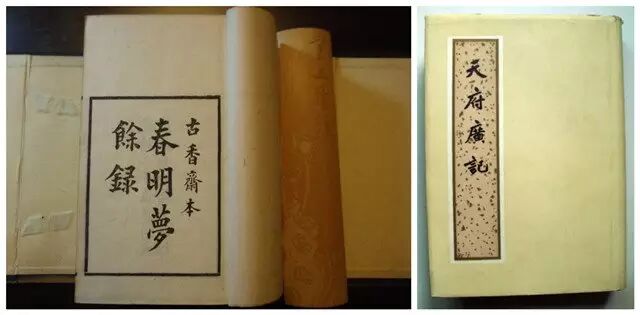 古香齋本
春明夢
餘録
天府廣記